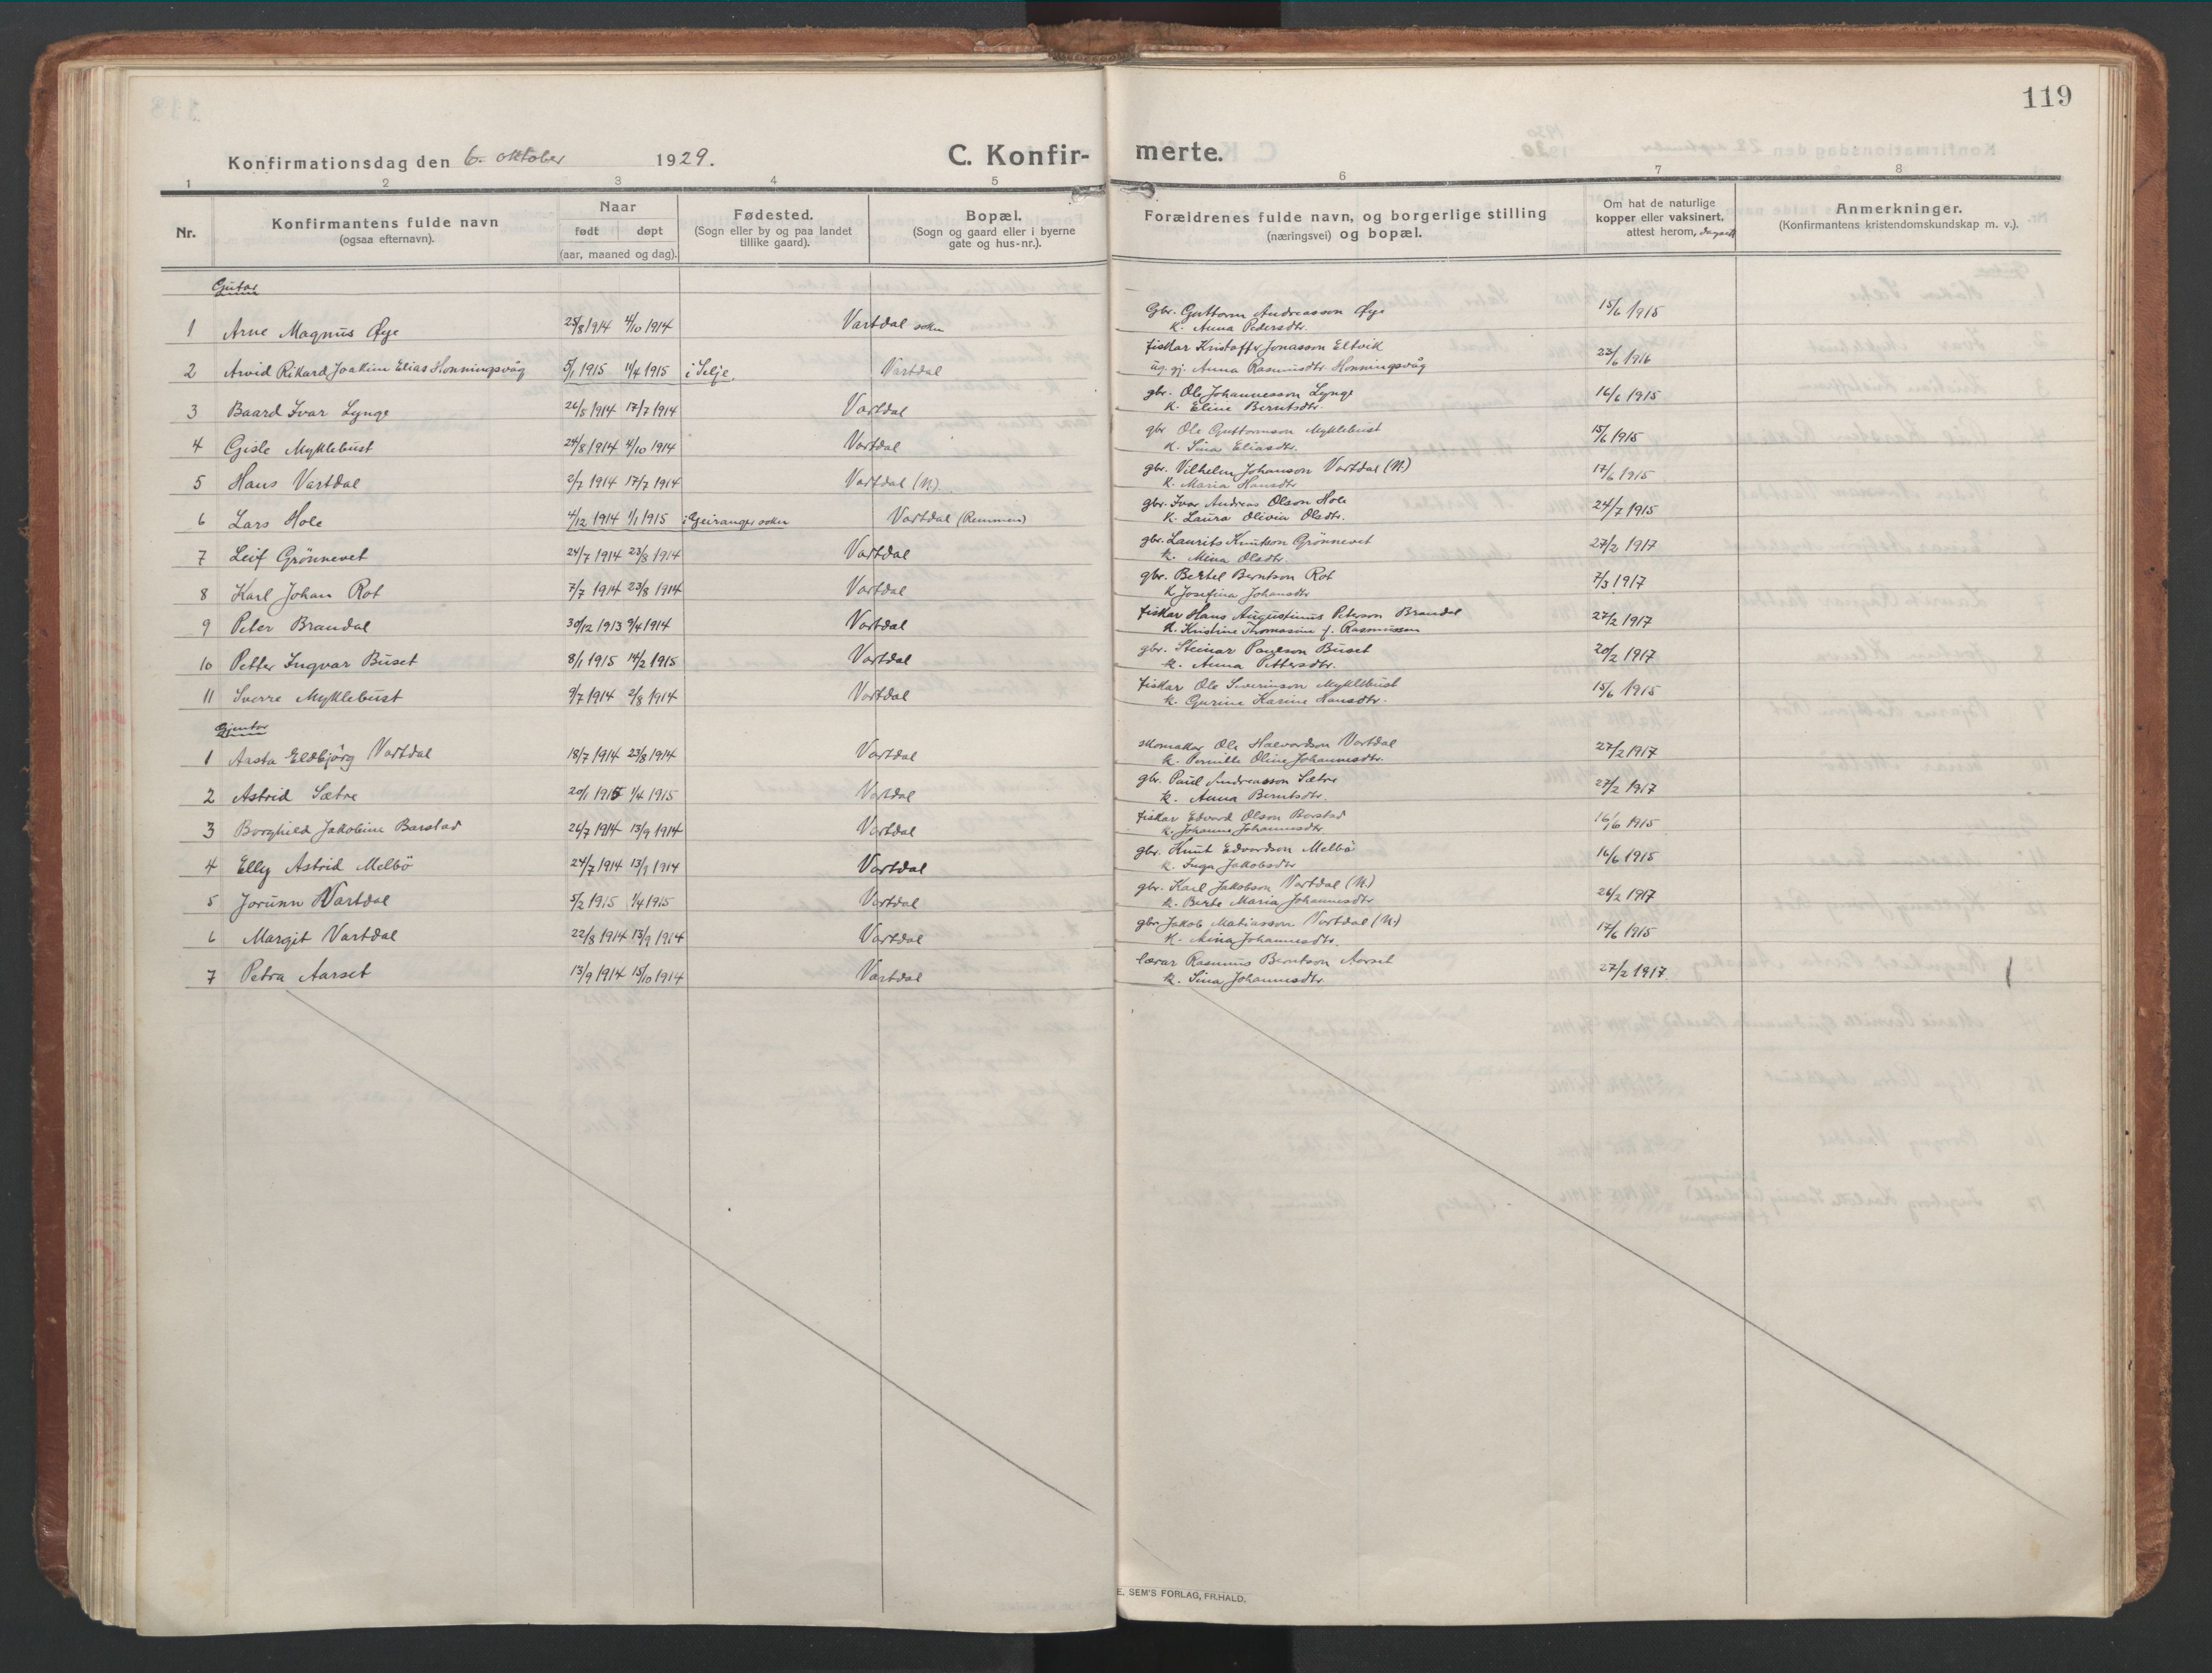 119
Konfirmationsdag den 6. oktober 1929. C. Konfir- merte.
1 2 3 4 5 6 7 8
Nr. Konfirmantens fulde navn (ogsaa efternavn). Naar født døpt (aar, maaned og dag). Fødested. (Sogn eller by og paa landet tillike gaard). Bopæl. (Sogn og gaard eller i byerne gate og hus-nr.). Forældrenes fulde navn, og borgerlige stilling (næringsvei) og bopæl. Om hat de naturlige kopper eller vaksinert, attest herom, dagsett Anmerkninger. (Konfirmantens kristendomskundskap m. v.).
Gutar
1 Arne Magnus Øye 25/8 1914 4/10 1914 Vartdal sokn Gbr. Guttorm Andreasson Øye 15/6 1915
k. Anna Pedersdtr.
2 Arvid Rikard Joakim Elias Honningsvåg 5/1 1915 11/4 1915 i Selje. Vartdal fiskar Kristoffer Jonasson Eltvik 23/6 1916
ug. gj. Anna Rasmusdtr. Honningsvåg
3 Baard Ivar Lynge 26/5 1914 17/7 1914 Vartdal gbr. Ole Johannesson Lynge 16/6 1915
k. Eline Berntsdtr.
4 Gisle Myklebust 24/8 1914 4/10 1914 Vartdal gbr Ole Guttormson Myklebust 15/6 1915
k. Sina Eliasdtr.
5 Hans Vartdal 2/7 1914 17/7 1914 Vartdal (N.) gbr. Vilhelm Johanson Vartdal (N.) 17/6 1915
k. Maria Hansdtr.
6 Lars Hole 4/12 1914 1/1 1915 i Geiranger sokn Vartdal (Remmen) gbr. Ivar Andreas Olson Hole 24/7 1915
k. Laura Olivia Olsdtr.
7 Leif Grönnevet 24/7 1914 23/8 1914 Vartdal gbr. Laurits Knutson Grönnevet 27/2 1917
k. Mina Olsdtr.
8 Karl Johan Rot 7/7 1914 23/8 1914 Vartdal gbr. Bertel Berntson Rot 7/3 1917
k Josefina Johansdtr
9 Peter Brandal 30/12 1913 9/4 1914 Vartdal fiskar Hans Augustinus Peterson Brandal 27/2 1917
k. Kristine Thomasine f. Rasmussen
10 Petter Ingvar Buset 8/1 1915 14/2 1915 Vartdal gbr. Steinar Paulson Buset 20/2 1917
k. Anna Pettersdtr.
11 Sverre Myklebust 9/7 1914 2/8 1914 Vartdal fiskar Ole Severinson Myklebust 15/6 1915
k. Gurine Karine Hansdtr.
Gjentor
1 Aasta Eldbjörg Vartdal 18/7 1914 23/8 1914 Vartdal skomakar Ole Halvordson Vartdal 27/2 1917
k. Pernille Oline Johannesdtr.
2 Astrid Sætre 20/1 1915 1/4 1915 Vartdal gbr. Paul Andreasson Sætre 27/2 1917
k. Anna Berntsdtr.
3 Borghild Jakobine Barstad 26/7 1914 13/9 1914 Vartdal fiskar Edvard Olson Barstad 16/6 1915
k. Johanne Johannesdtr
4 Elly Astrid Melbö 24/7 1914 13/9 1914 Vartdal gbr. Knut Edvardson Melbö 16/6 1915
k. Inga Jakobsdtr
5 Jorunn Vartdal 5/2 1915 1/4 1915 Vartdal gbr. Karl Jakobson Vartdal (N.) 26/2 1917
k. Berte Maria Johannesdtr
6 Margit Vartdal 22/8 1914 13/9 1914 Vartdal gbr Jakob Matiasson Vartdal (N.) 17/6 1915
k. Anina Johannesdtr.
7 Petra Aarset 13/9 1914 15/10 1914 Vartdal lærar Rasmus Berntson Aarset 27/2 1917.
k. Sina Johannesdtr.
E. SEM'S FORLAG, FR.HALD.